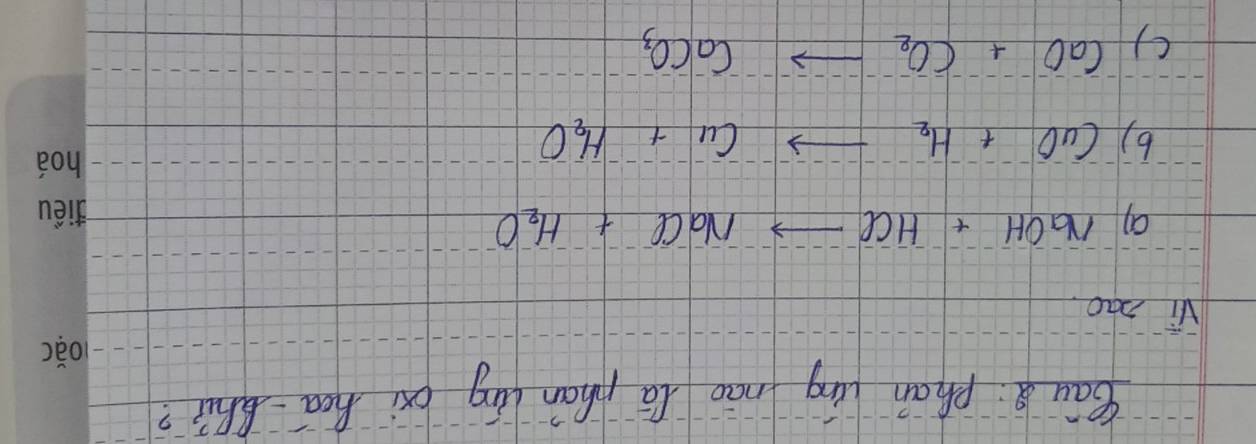 Câu 2: phản ứng nào là phản ứng oxi hóa - khử?
Vì sao
a) NaOH + HCl → NaCl + H₂O
b) CuO + H₂ → Cu + H₂O
c) CaO + CO₂ → CaCO₃
oặc
điều
hoá